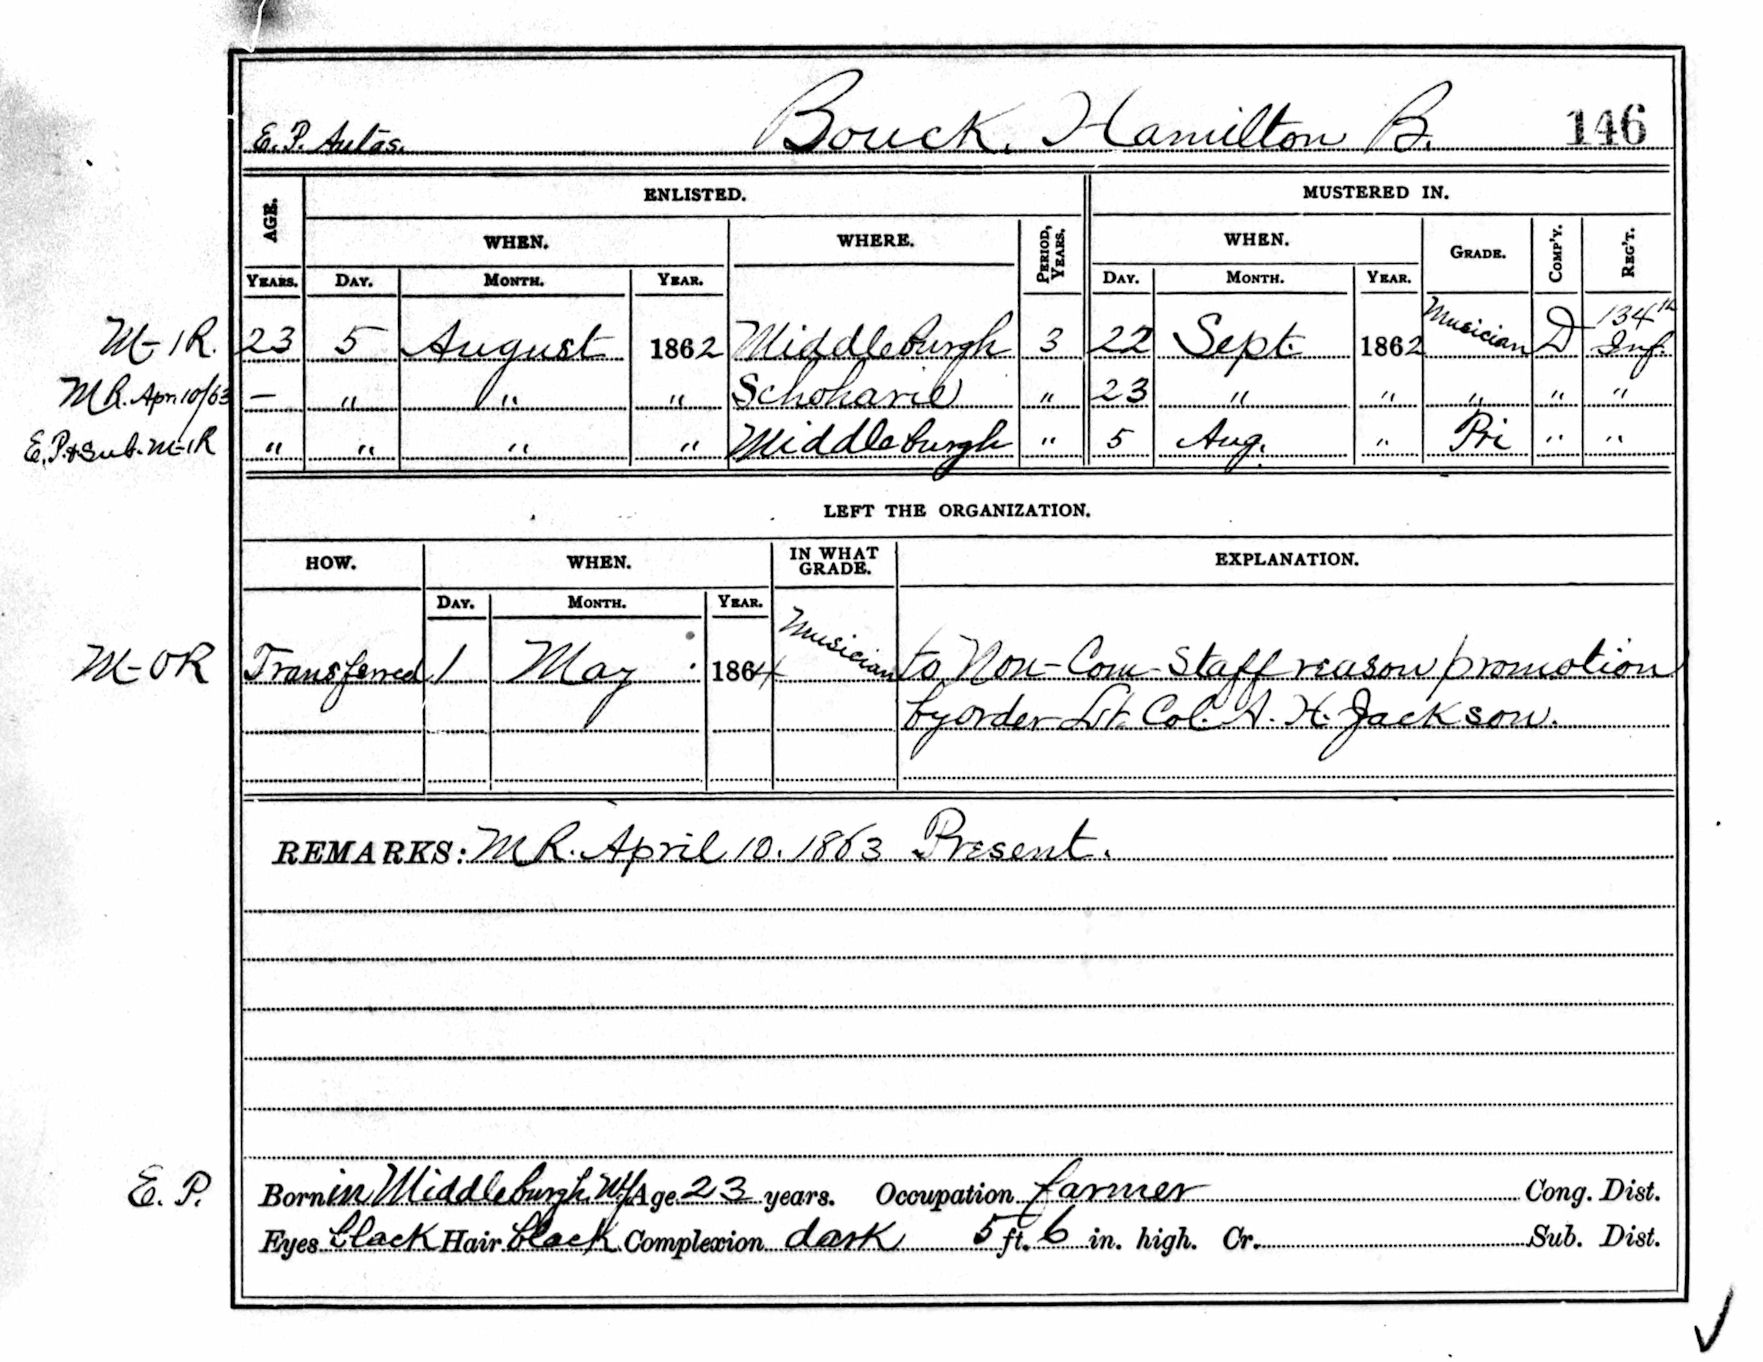 E. P. Autas. Bouck, Hamilton B. 146
AGE. ENLISTED. MUSTERED IN.
WHEN. WHERE. PERIOD, YEARS. WHEN. GRADE. COMP'Y. REG'T.
YEARS. DAY. MONTH. YEAR. DAY. MONTH. YEAR.
M-IR. 23 5 August 1862 Middleburgh 3 22 Sept. 1862 Musician D 134th Inf.
M R. Apr. 10/63 — " " " Schoharie " 23 " " " " "
E. P. & Sub. M-IR " " " " Middleburgh " 5 Aug. " Pri " "
LEFT THE ORGANIZATION.
HOW. WHEN. IN WHAT GRADE. EXPLANATION.
DAY. MONTH. YEAR.
M-OR Transferred 1 May 1864 Musician to Non-Com-Staff reason promotion
by order Lt. Col. A. H. Jackson.
REMARKS: M R. April 10. 1863 Present.
E. P. Born in Middleburgh NY Age 23 years. Occupation farmer Cong. Dist.
Eyes black Hair black Complexion dark 5 ft. 6 in. high. Cr. Sub. Dist.